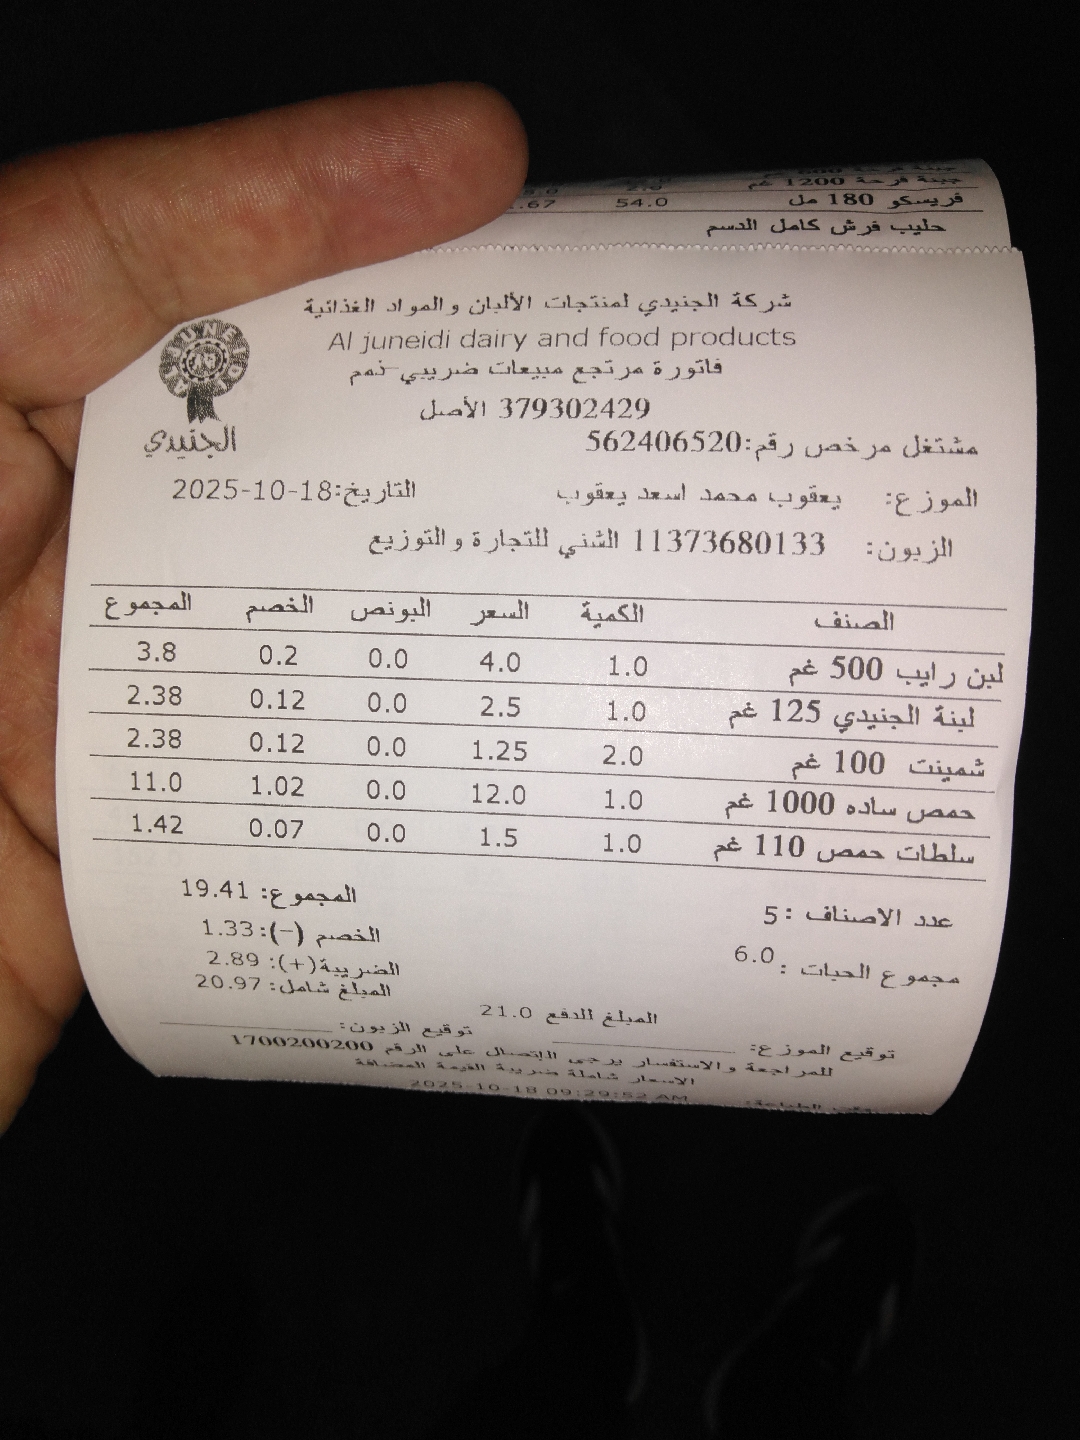 جبنة فرحة 1200 غم 2.0
فريسكو 180 مل 54.0
حليب فرش كامل الدسم
شركة الجنيدي لمنتجات الألبان والمواد الغذائية
Al juneidi dairy and food products
فاتورة مرتجع مبيعات ضريبي-ذمم
379302429 الأصل
AL JUNEIDI
الجنيدي
مشتغل مرخص رقم:562406520
الموزع: يعقوب محمد اسعد يعقوب التاريخ:2025-10-18
الزبون: 11373680133 الشني للتجارة والتوزيع
الصنف الكمية السعر البونص الخصم المجموع
لبن رايب 500 غم 1.0 4.0 0.0 0.2 3.8
لبنة الجنيدي 125 غم 1.0 2.5 0.0 0.12 2.38
شمينت 100 غم 2.0 1.25 0.0 0.12 2.38
حمص ساده 1000 غم 1.0 12.0 0.0 1.02 11.0
سلطات حمص 110 غم 1.0 1.5 0.0 0.07 1.42
عدد الاصناف :5 المجموع: 19.41
الخصم (-):1.33
مجموع الحبات : 6.0 الضريبة(+): 2.89
المبلغ شامل: 20.97
المبلغ للدفع 21.0
توقيع الموزع: توقيع الزبون:
للمراجعة والاستفسار يرجى الإتصال على الرقم 1700200200
الاسعار شاملة ضريبة القيمة المضافة
2025-10-18 09:29:52 AM